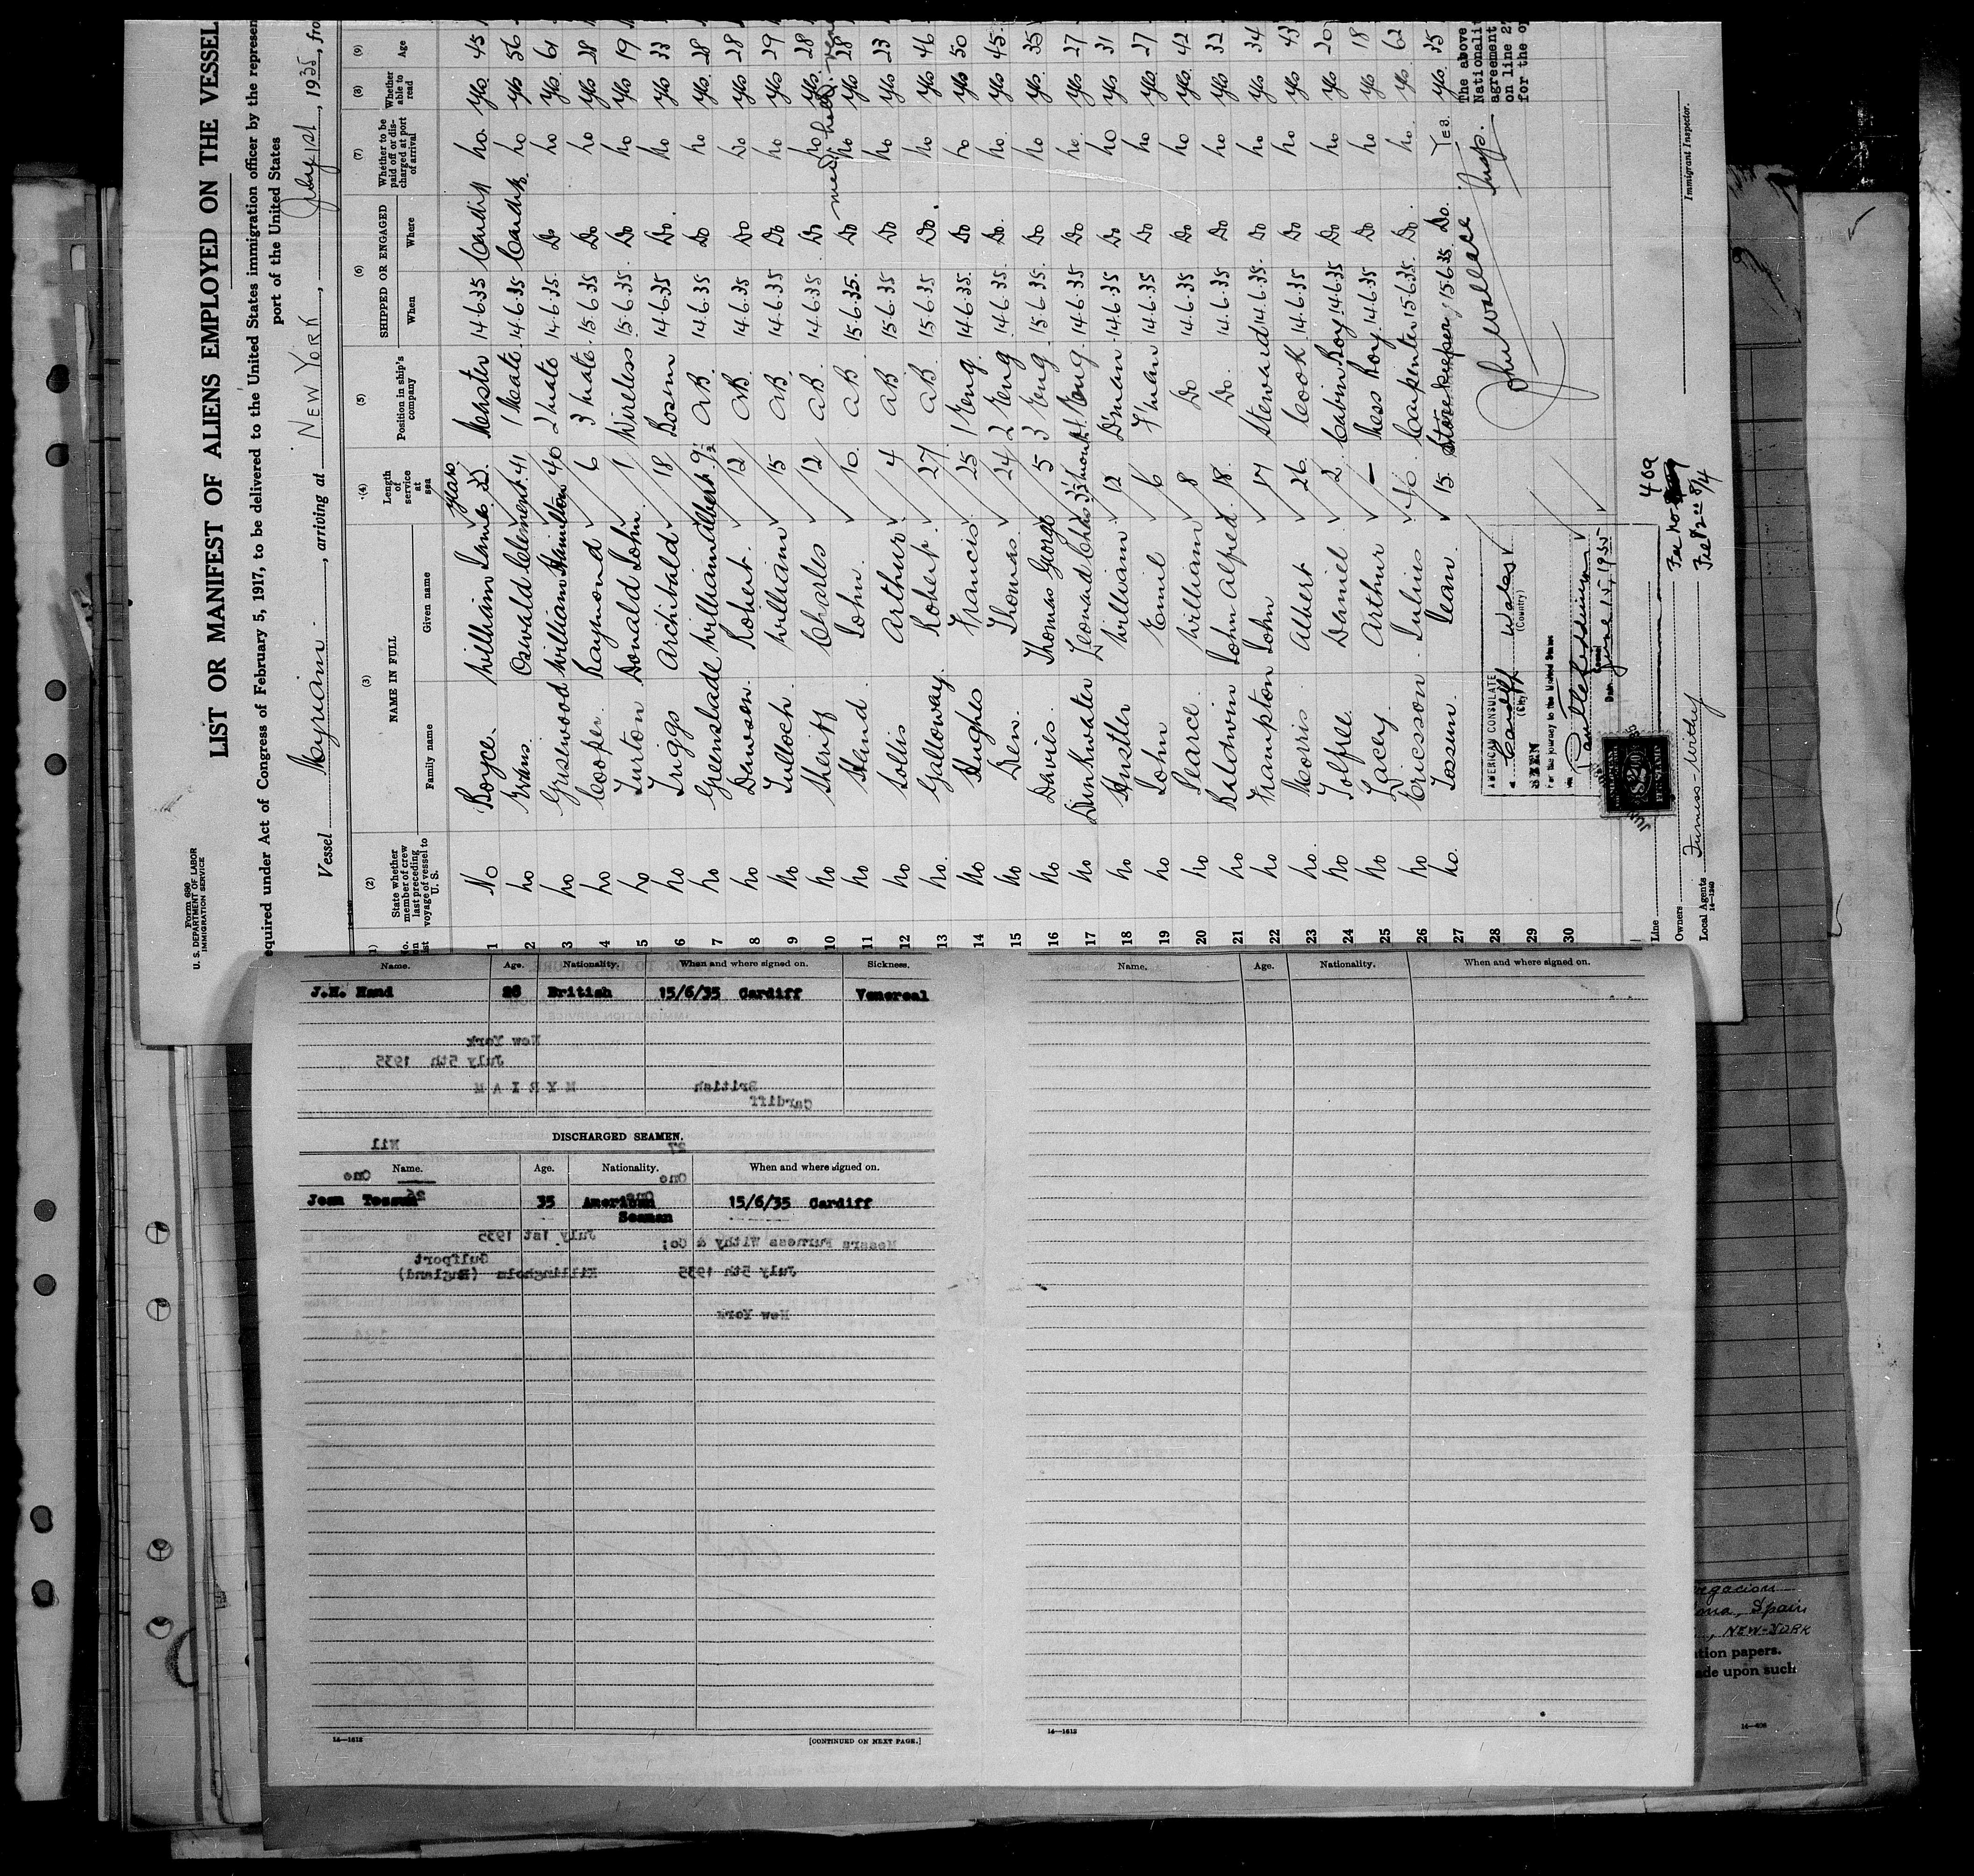 Form 680
U. S. DEPARTMENT OF LABOR
IMMIGRATION SERVICE
LIST OR MANIFEST OF ALIENS EMPLOYED ON THE VESSEL
equired under Act of Congress of February 5, 1917, to be delivered to the United States immigration officer by the represen
port of the United States
Vessel Myriam, arriving at NEW YORK, July 1st, 1935, fro
(2) (3) (4) (5) (6) (7) (8) (9)
State whether member of crew last preceding voyage of vessel to U. S. NAME IN FULL Family name Given name Length of service at sea Position in ship's company SHIPPED OR ENGAGED When Where Whether to be paid off or discharged at port of arrival Whether able to read Age
years
1 No Boyce William James 25 Master 14.6.35 Cardiff No. Yes. 45
2 No Evans Oswald Clement 41 1 Mate 14.6.35 Cardiff No Yes 56
3 No Griserwood William Hamilton 40 2 Mate 14.6.35 Do No Yes. 61
4 No Cooper Raymond 6 3 Mate 15.6.35 Do No Yes 28
5 No Turton Donald John 1 Wireless 15.6.35 Do No Yes 19
6 No Triggs Archibald 18 Bosun 14.6.35 Do. No Yes 33
7 No Greenslade William Albert 9½ AB. 14.6.35 Do No Yes. 28
8 No Dawson Robert 12 AB. 14.6.35 Do No Yes 28
9 No Tulloch William 15 AB. 14.6.35 Do No Yes 29
10 No Sheriff Charles 12 AB. 14.6.35 Do No Yes. 28
11 No Hand John 10. AB 15.6.35. Do No Yes 28
12 No Sollis Arthur 4 AB 15.6.35 Do No Yes 23
13 No. Galloway Robert 27 AB. 15.6.35 Do. No Yes 46
14 No Hughes Francis 25 1 Eng. 14.6.35. Do No Yes 50
15 No Dew Thomas 24 2 Eng 14.6.35 Do. No. Yes 45.
16 No Davies Thomas George 5 3 Eng. 15.6.35. Do No Yes. 35
17 No Drinkwater Leonard Chas 3½ months 4 Eng. 14.6.35 Do No. Yes 27
18 No Hustler William 12 D'man 14.6.35 Do No Yes 31
19 No John Emil 6 F'man 14.6.35 Do No Yes 27
20 No Pearce William 8 Do 14.6.35 Do No Yes. 42
21 No Baldwin John Alfred 18. Do. 14.6.35 Do No Yes 32
22 No Frampton John 17 Steward 14.6.35. Do No Yes 34
23 No. Morris Albert 26. Cook 14.6.35 Do No Yes 43
24 No Tolfree Daniel 2. Cabin Boy 14.6.35 Do No Yes 20
25 No Lacey Arthur – Mess Boy 14.6.35 Do No Yes 18
26 No Ericsson Julius 40 Carpenter 15.6.35. Do. No. Yes. 62
27 No. Tossum Jean 15. Storekeeper 15.6.35 Do. Yes. Yes. 35
28
29
30
med. held.
The above
Nationalit
agreement
on line 27
for the op
John Wallace Insp.
Immigrant Inspector.
AMERICAN CONSULATE
Cardiff Wales
(City) (Country)
SEEN
For the journey to the United States
Date June 15, 1935
Line
Owners
Local Agents Furness-Withy
14—1240
409
Fee No.
Fee $2.00
Name. Age. Nationality. When and where signed on. Sickness.
J.H. Hand 28 British 15/6/35 Cardiff Venereal
New York
July 5th 1935
MYRIAM British
Cardiff
DISCHARGED SEAMEN.
Nil 27
Name. Age. Nationality. When and where signed on.
One One
26 One
Jean Tossum 35 American 15/6/35 Cardiff
Seaman
July 1st 1935 Messrs Furness Withy & Co;
Gulfport
Killingholm (England) July 5th 1935
New York
14—1613
[CONTINUED ON NEXT PAGE.]
Name. Age. Nationality. When and where signed on.
14—1613
Spain
NEW-YORK
tion papers.
ade upon such